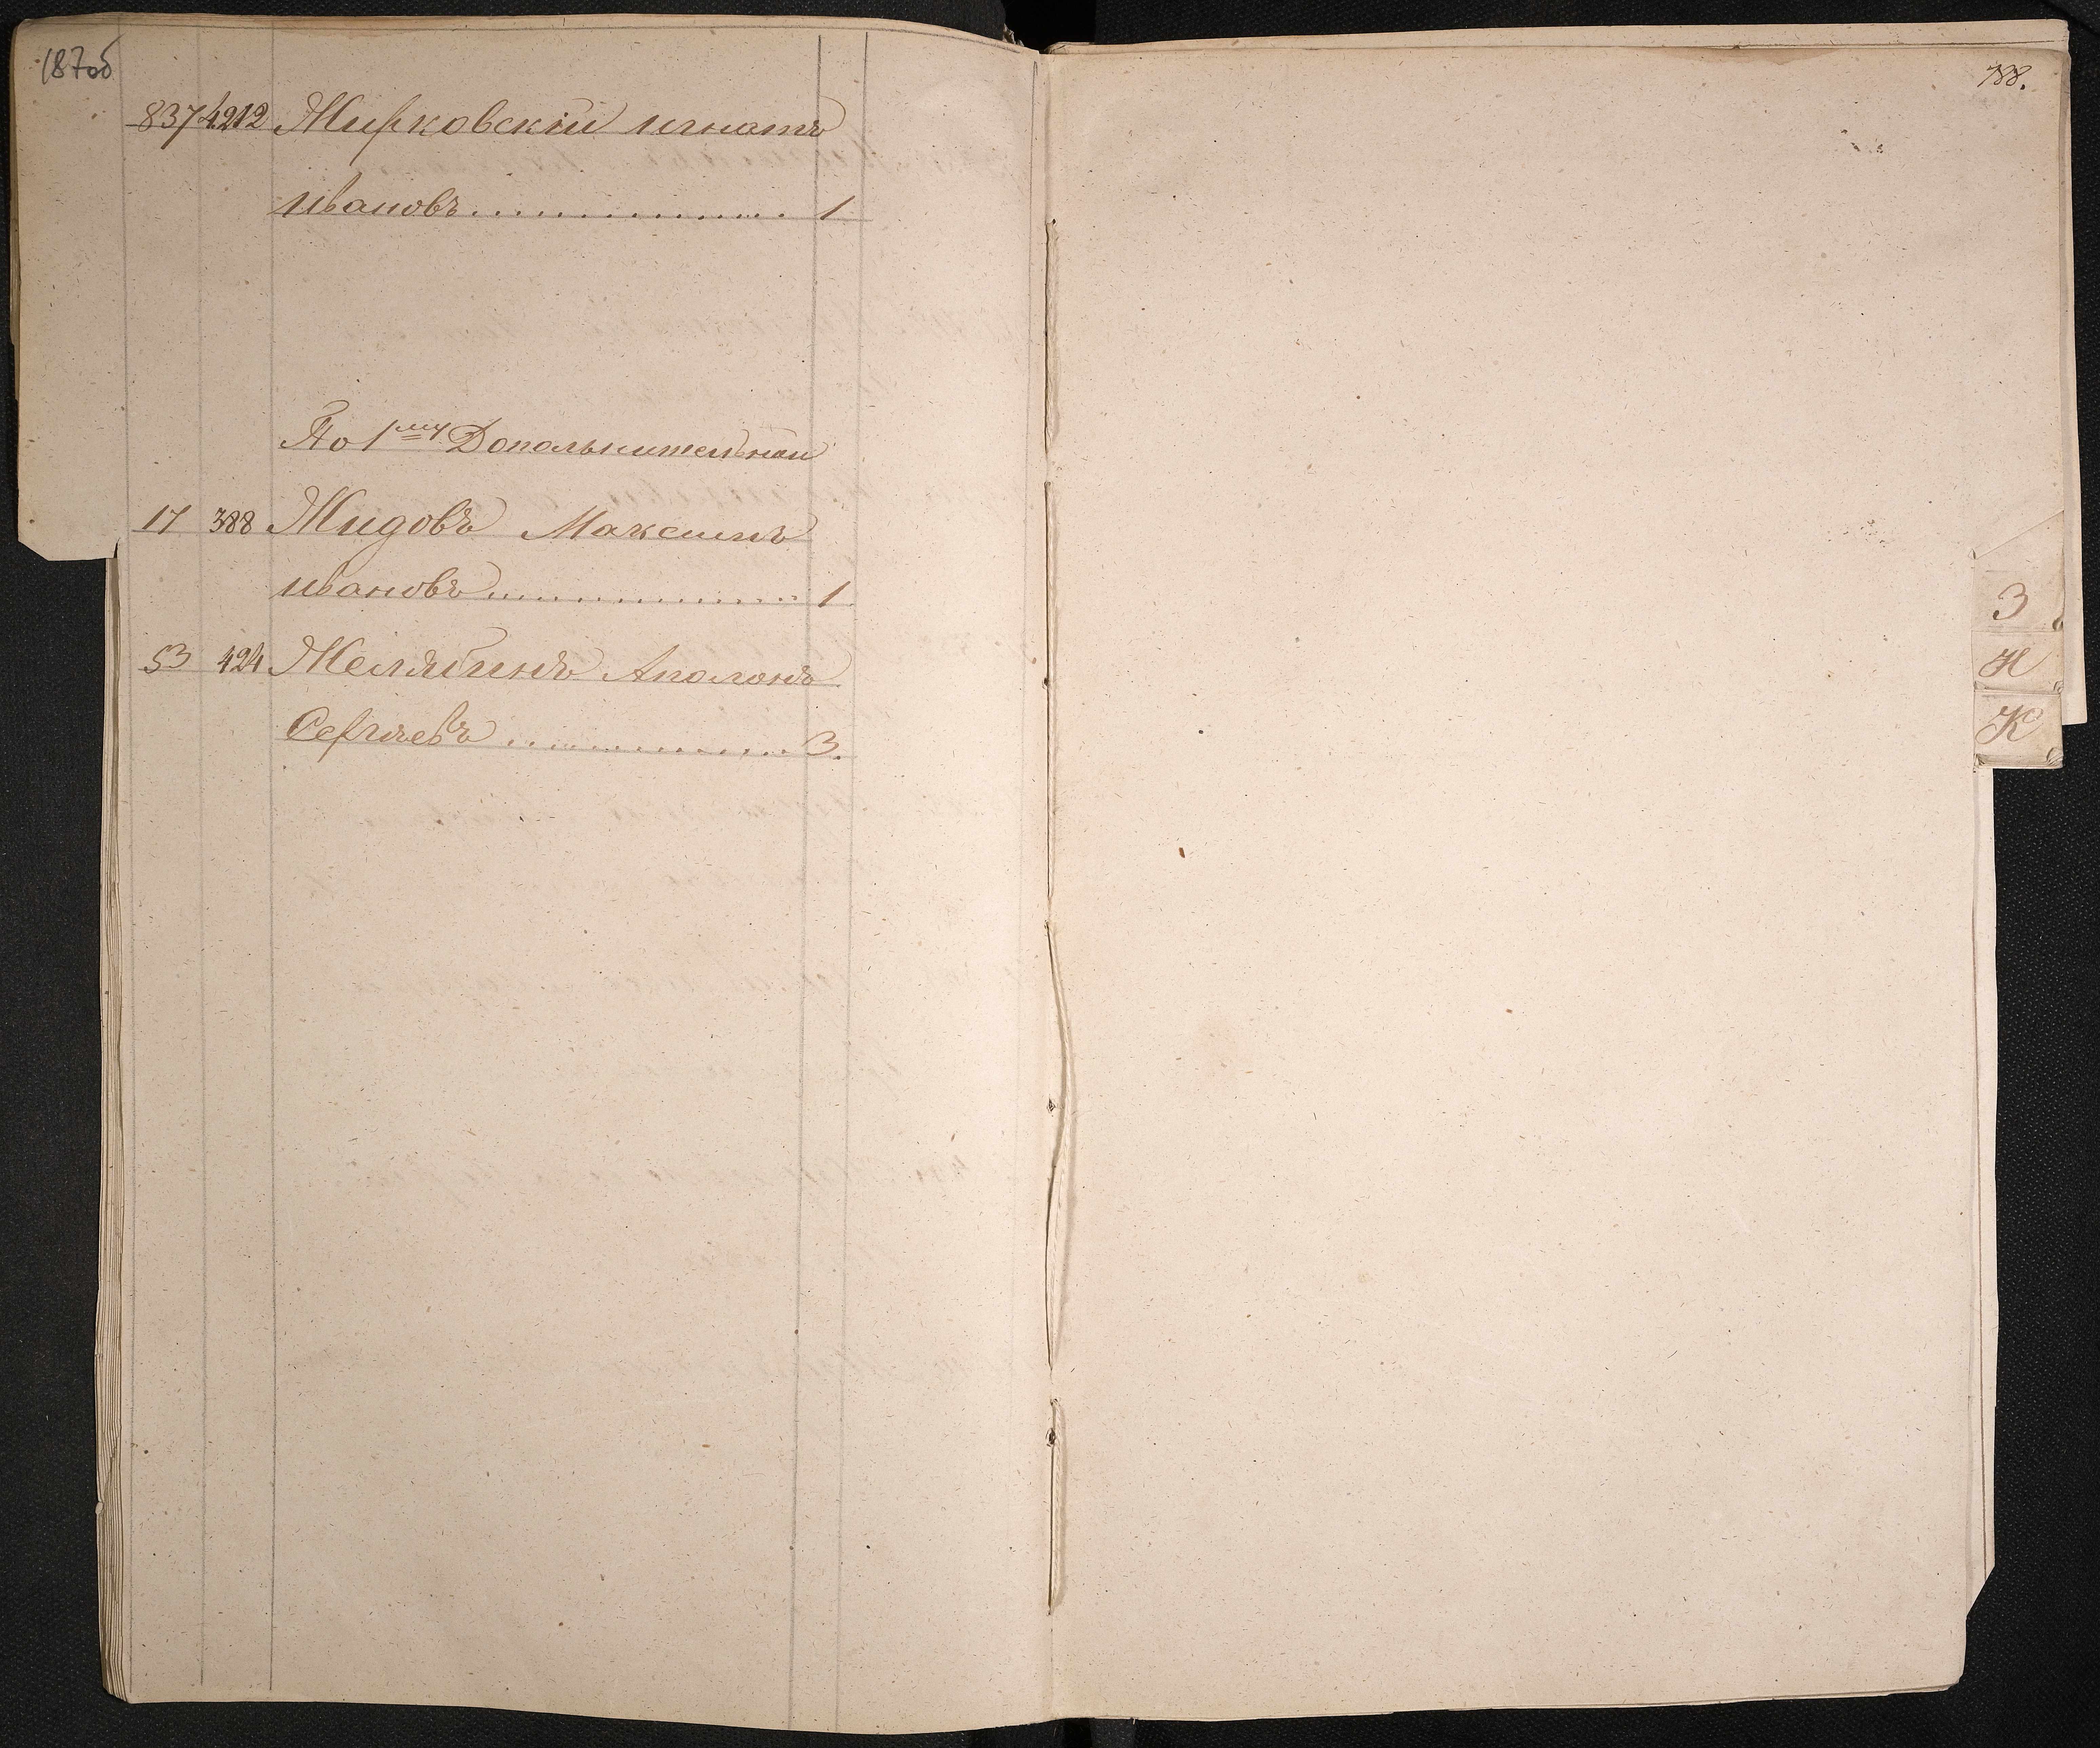 187об
837 4212 Жирковскій Игнатъ
Ивановъ 1
По 1му Дополнительной
17 388 Жидовъ Максимъ
Ивановъ 1
53 424 Желябинъ Аполонъ
Сергѣевъ 3.
188.
З
И
К